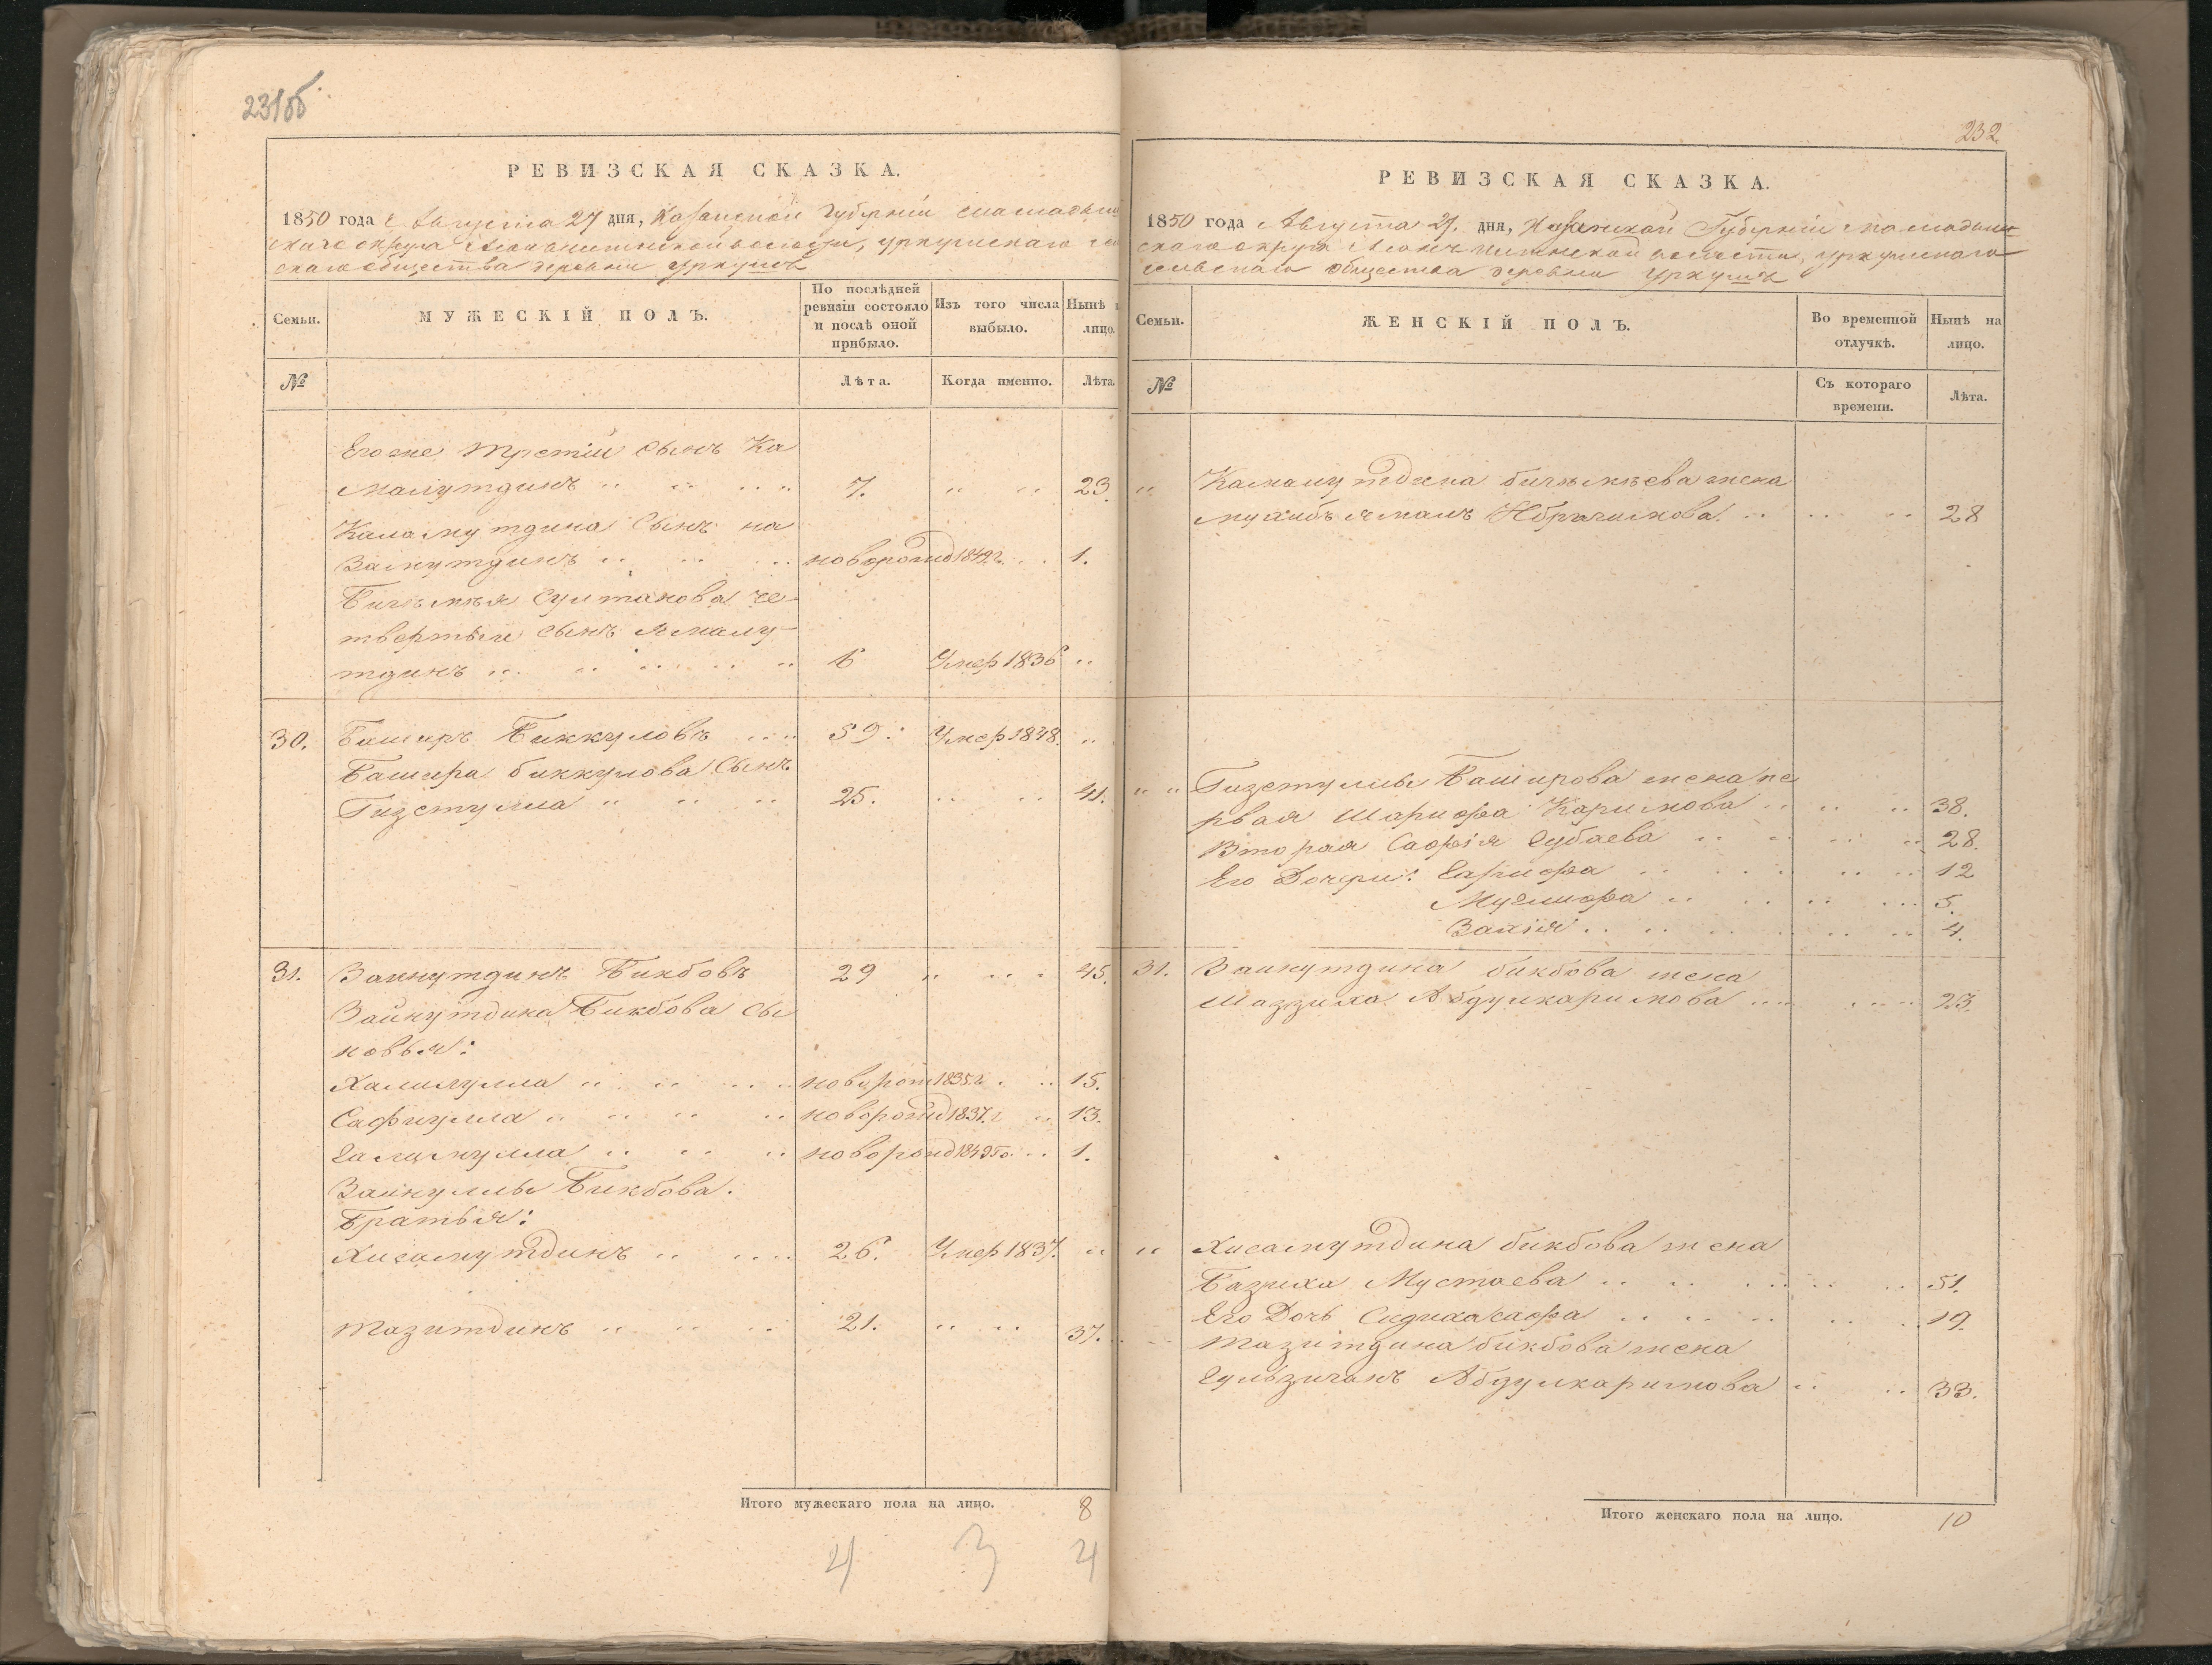 231об
РЕВИЗСКАЯ СКАЗКА.
1850 года Августа 27 дня, Казанской Губернiи Мамадыш
скаго округа волости, Уркушскаго се
скаго общества деревни Уркушъ
Семьи.
МУЖЕСКІЙ ПОЛЪ.
По послѣдней
ревизіи состояло
и послѣ оной
прибыло.
Изъ того числа
выбыло.
Нынѣ
лицо.
№
Лѣта.
Когда именно.
Лѣта.
Его же третiй сынъ Ка
малутдинъ 7. 23.
Камалутдина сынъ на
Замутдинъ новорожд 1849 г. 1.
Султанова че-
твертый сынъ Ямалу-
тдинъ 6 Умер 1836
30. Баширъ Биккуловъ 59. Умер 1848.
Башира Биккулова сынъ
Гизетулла 25. 41.
31. Зайнутдинъ Бикбовъ 29 45.
Зайнутдина Бикбова сы
новья:
Халилулла новорож 1835 г. 15.
Сафиулла новорожд 1837. г 13.
новорожд 1849 го 1.
Зайнуллы Бикбова.
братья:
Хисамутдинъ 26. Умер 1837.
Мазитдинъ 21. 37.
Итого мужескаго пола на лицо. 8
4 3 4
232
РЕВИЗСКАЯ СКАЗКА.
1850 года Августа 27. дня, Казанской Губернiи Мамадыш
скаго округа волости, Уркушскаго
сельскаго общества деревни Уркушъ
Семьи.
ЖЕНСКІЙ ПОЛЪ.
Во временной
отлучкѣ.
Нынѣ на
лицо.
№
Съ котораго
времени.
Лѣта.
Камалутдина жена
Ибрагимова. 28
Гизетуллы Баширова жена пе
рвая Шарифа Каримова 38.
Вторая Сафiя Губаева 28.
Его Дочери: Гарифа 12
5.
Закiя 4.
31. Зайнутдина бикбова жена
Маззиха Абдулкаримова 23.
Хисамутдина бикбова жена
Базиха Мустаева 51.
Его Дочь 19.
Мазитдина бикбова жена
Абдулкаримова 33.
Итого женскаго пола на лицо. 10